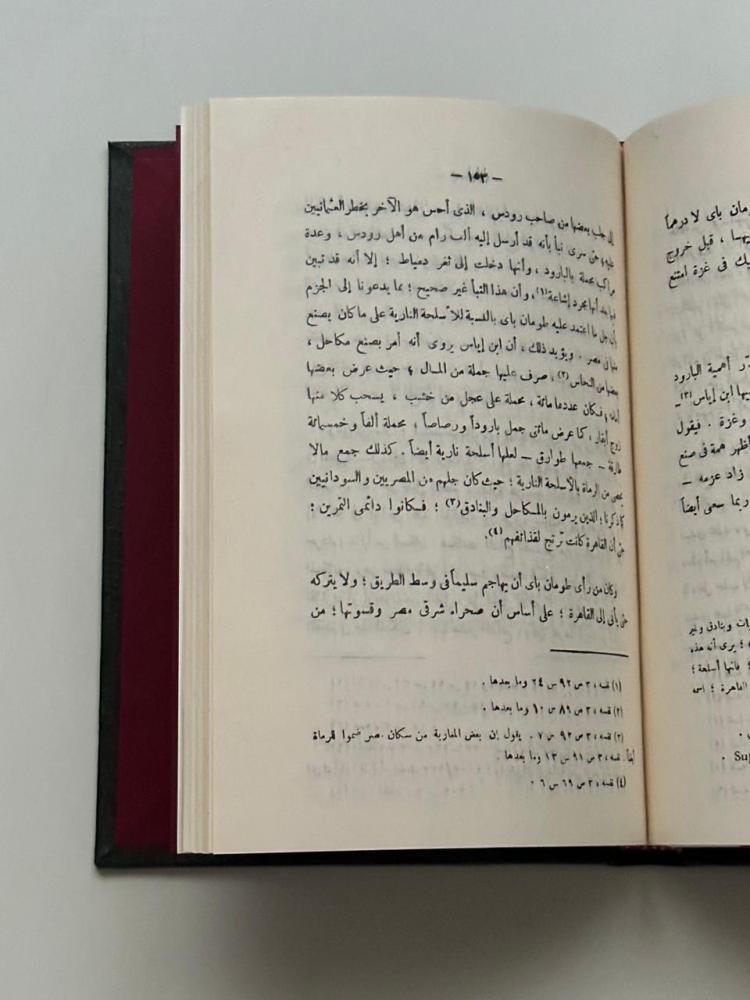 — ١٥٣ —
إلى جلب بعضها من صاحب رودس ، الذى أحس هو الآخر بخطر العثمانيين
عليه ؛ حتى سرى نبأ بأنه قد أرسل إليه ألف رام من أهل رودس ، وعدة
مراكب محملة بالبارود ، وأنها دخلت إلى ثغر دمياط ؛ إلا أنه قد تبين
فيما بعد أنها مجرد إشاعة(١)، وأن هذا النبأ غير صحيح ؛ مما يدعونا إلى الجزم
بأن جل ما اعتمد عليه طومان باى بالنسبة للأسلحة النارية على ما كان يصنع
منها فى مصر . ويؤيد ذلك ، أن ابن إياس يروى أنه أمر بصنع مكاحل ،
بعضها من النحاس(٢)، صرف عليها جملة من المال ؛ حيث عرض بعضها
فكان عددها مائة ، محملة على عجل من خشب ، يسحب كلا منها
زوج أبقار ، كما عرض مائتى جمل بارودا ورصاصا ، محملة ألفا وخمسمائة
طارقة — جمعها طوارق — لعلها أسلحة نارية أيضاً . كذلك جمع مالا
يحصى من الرماة بالأسلحة النارية ؛ حيث كان جلهم من المصريين والسودانيين
كما ذكرنا ؛ الذين يرمون بالمكاحل والبنادق(٣) ؛ فكانوا دائمى التمرين ؛
حتى أن القاهرة كانت ترتج لقذائفهم(٤).
وكان من رأى طومان باى أن يهاجم سليما فى وسط الطريق ؛ ولا يتركه
حتى يأتى إلى القاهرة ؛ على أساس أن صحراء شرقى مصر وقسوتها ؛ من
(١) نفسه ، ٣ ص ٩٢ س ٢٤ وما بعدها .
(٢) نفسه ، ٣ ص ٨٩ س ١٠ وما بعدها .
(٣) نفسه ، ٣ ص ٩٢ س ٧ . يقول إن بعض المغاربة من سكان مصر ضموا للرماة
أيضاً . نفسه ، ٣ ص ٩١ س ١٣ وما بعدها .
(٤) نفسه ، ٣ ص ٦٩ س ٦ .
ومان باى لا درهماً
، قبل خروج
يك فى غزة امتنع
أهمية البارود
يها ابن إياس(٣)ـ
وغزة . فيقول
أظهر همة فى صنع
زاد عزمه —
ربما سعى أيضاً
وبنادق وغير
؛ يرى أنه هذه
؛ فانها أسلحة ؛
القاهرة ؛ اسمه
Su